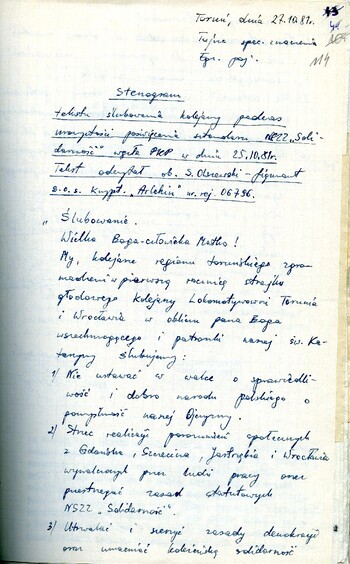 Toruń, dnia 27.10.81r.
Tajne spec. znaczenia
Egz. poj.
114
Stenogram
tekstu ślubowania kolejarzy podczas
uroczystości poświęcenia sztandaru NSZZ „Soli-
darność" węzła PKP w dniu 25.10.81r.
Tekst odczytał ob. S. Olszewski – figurant
s.o.s. krypt. „Arlekin" nr. rej. 06796.
„ Ślubowanie.
Wielka Boga-człowieka Matko!
My, kolejarze regionu toruńskiego zgro-
madzeni w pierwszą rocznicę strajku
głodowego kolejarzy Lokomotywowni Torunia
i Wrocławia w obliczu pana Boga
wszechmogącego i patronki naszej św. Ka-
tarzyny ślubujemy:
1/ Nie ustawać w walce o sprawiedli-
wość i dobro narodu polskiego o
pomyślność naszej Ojczyzny.
2/ Strzec realizacji porozumień społecznych
z Gdańska, Szczecina, Jastrzębia i Wrocławia
wywalczonych przez ludzi pracy oraz
przestrzegać zasad statutowych
NSZZ „Solidarność".
3/ Utrwalać i szerzyć zasady demokracji
oraz umacniać koleżeńską solidarność